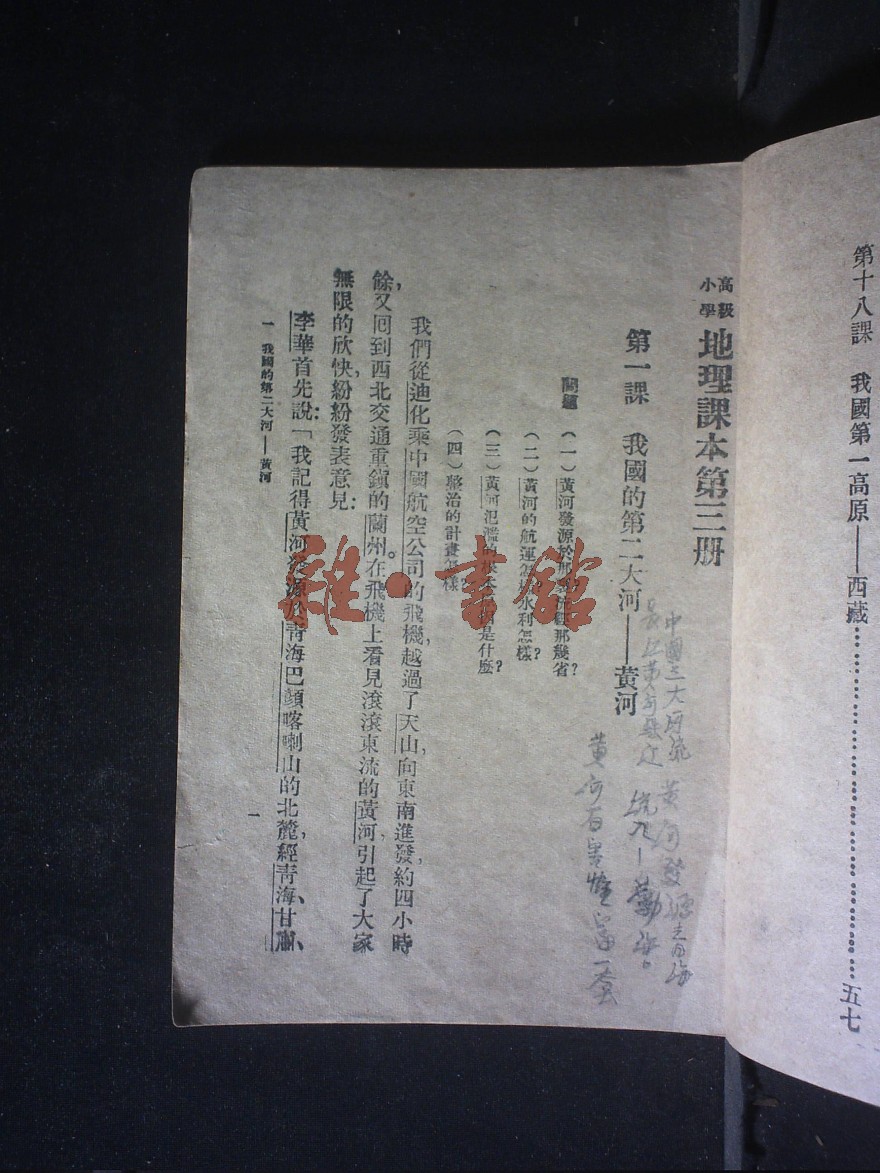 第十八課　我國第一高原——西藏…………………………五七
高級
小學
地理課本第三册
第一課　我國的第二大河——黃河
問題　(一)黃河發源於那裏？流經那幾省？
(二)黃河的航運怎樣？水利怎樣？
(三)黃河氾濫的根本原因是什麼？
(四)整治的計畫怎樣？
我們從迪化乘中國航空公司的飛機，越過了天山，向東南進發，約四小時
餘，又囘到西北交通重鎮的蘭州。在飛機上看見滾滾東流的黃河，引起了大家
無限的欣快，紛紛發表意見：
李華首先說：「我記得黃河發源於靑海巴顏喀喇山的北麓，經靑海、甘肅、
一　我國的第二大河——黃河
一
中國三大河流　黃河發源青海
長江黃河
黃河百害惟富一套
雜·書館